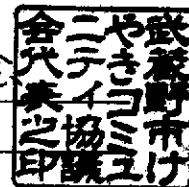 武蔵野市け
やきコミュ
ニティ協議
会代表之印